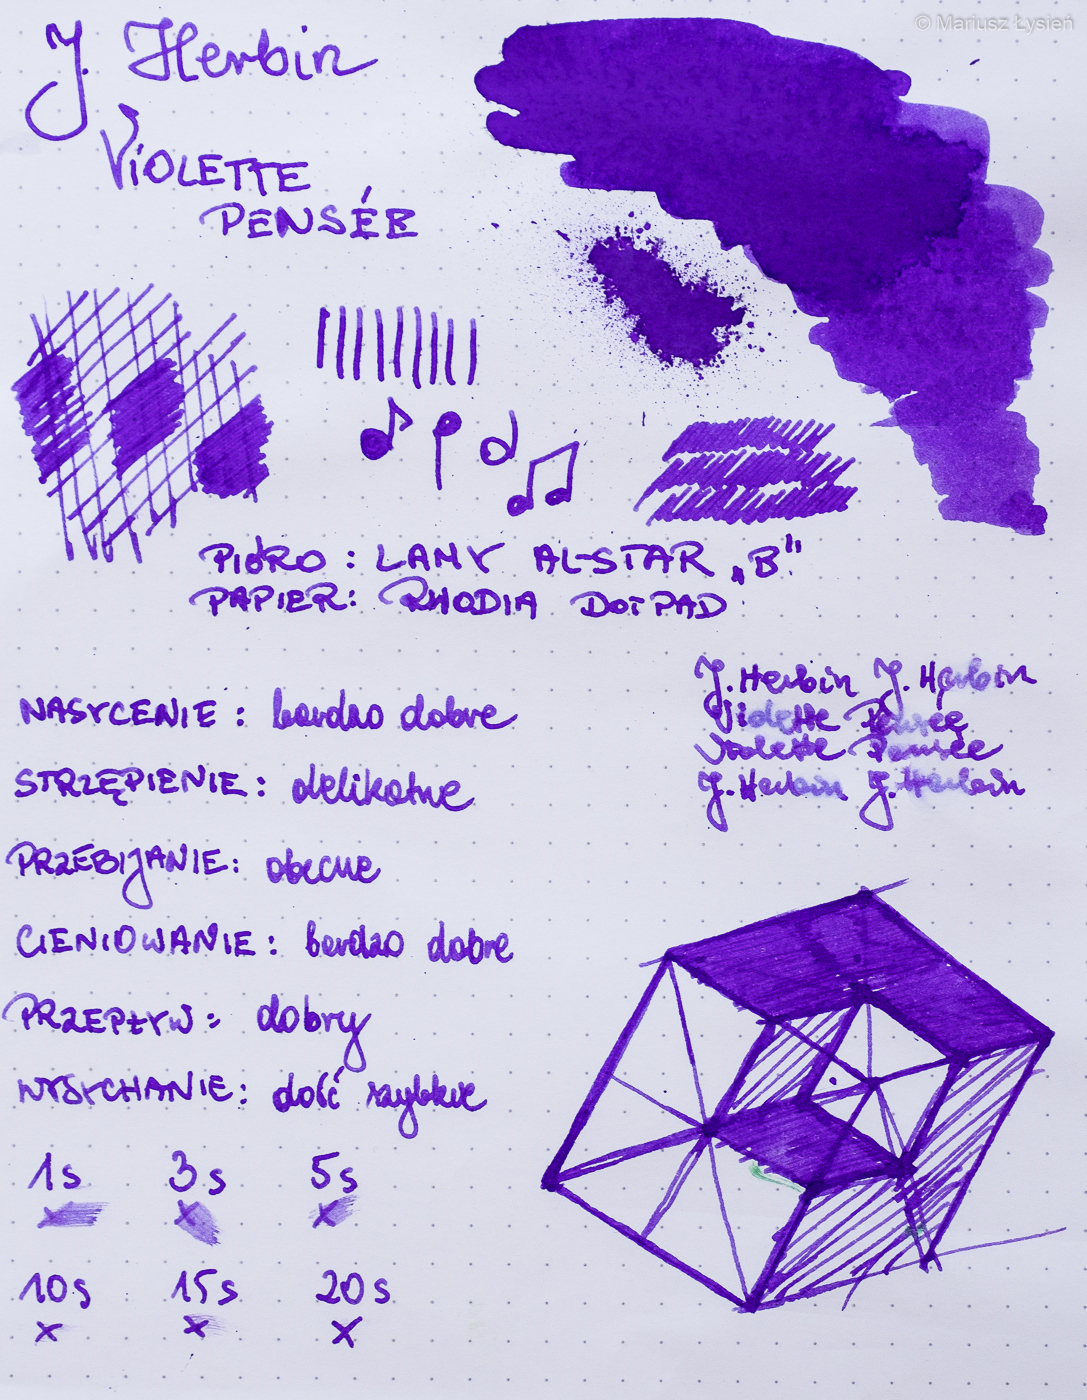 © Mariusz Łysień
J. Herbin
VIOLETTE
PENSÉE
PIÓRO : LAMY AL-STAR „B"
PAPIER: RHODIA DOTPAD
J. Herbin J. Herbin
Violette Pensée
Violette Pensée
J. Herbin J. Herbin
NASYCENIE : bardzo dobre
STRZĘPIENIE : delikatne
PRZEBIJANIE : obecne
CIENIOWANIE : bardzo dobre
PRZEPŁYW : dobry
WYSYCHANIE : dość szybkie
1s 3s 5s
x x x
10s 15s 20s
x x x